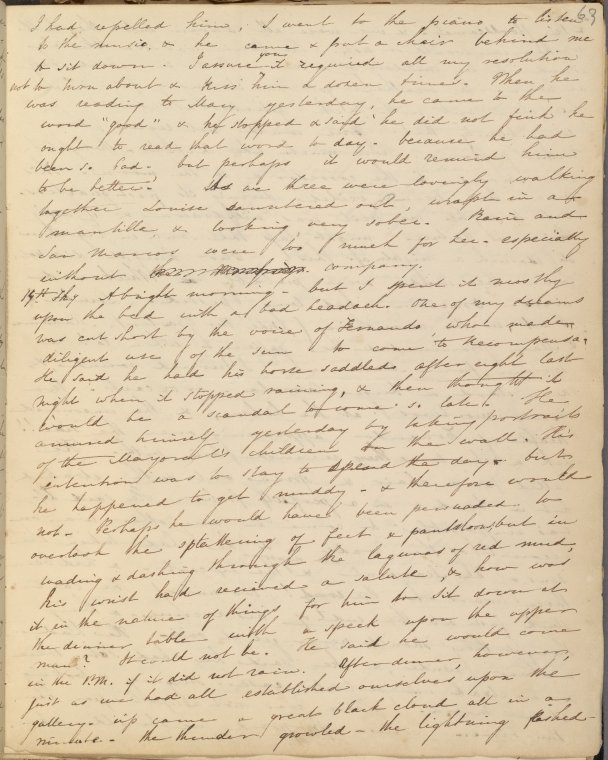 63
I had repelled him, I went to the piano to listen
to the music, & he came & put a chair behind me
to sit down. I assure you it required all my resolution
not to turn about & kiss him a dozen times. When he
was reading to Mary yesterday, he came to the
word "good" & he stopped & said he did not think he
ought to read that word to day- because he had
been so bad- but perhaps it would remind him
to be better. As we three were lovingly walking
together Louisa sauntered out, wrapt in a
mantilla, & looking very sober. Rain and
San Marcos were too much for her- especially
without company.
19th Thy A bright morning- but I spent it mostly
upon the bed with a bad headach. One of my dreams
was cut short by the voice of Fernando who made
diligent use of the sun to come to Recompensa-
He said he had his horse saddled after eight last
night when it stopped raining, & then thought it
would be a scandal to come so late! He
amused himself yesterday by taking portraits
of the Mayoral's children on the wall. His
intention was to stay to spend the day- but
he happened to get muddy- & therefore would
not- Perhaps he would have been persuaded to
overlook the splattering of feet & pantaloon, but in
wading & dashing through the lagunas of red mud,
his wrist had received a salute, & how was
it in the nature of things for him to sit down at
the dinner table with a speck upon the upper
man? It could not be. He said he would come
in the P.M. if it did not rain. After dinner, however,
just as we had all established ourselves upon the
gallery- up came a great black cloud all in a
minute- the thunder growled- the lightning flashed-